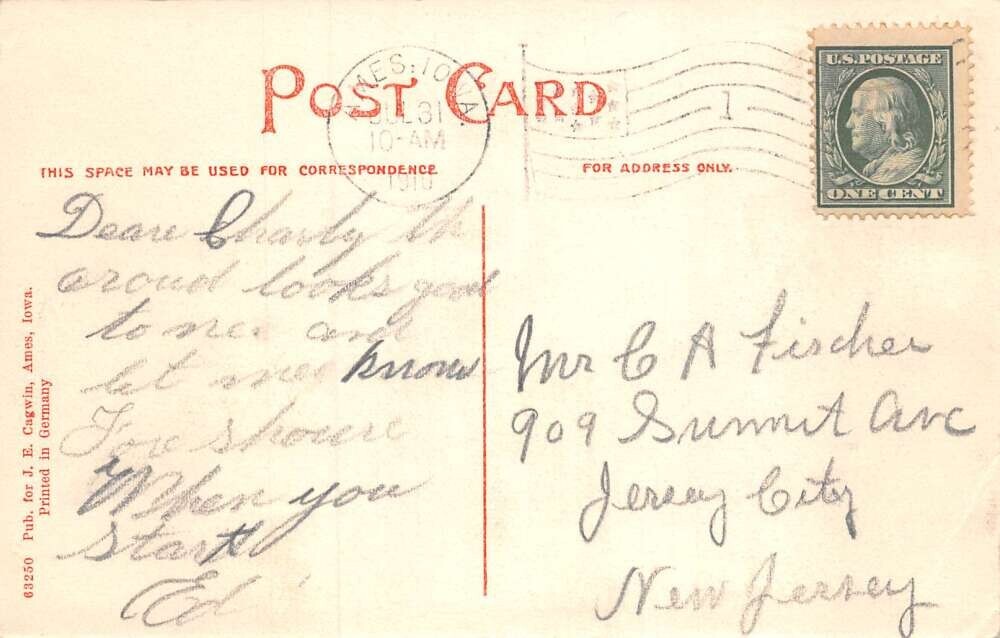 POST CARD
AMES, IOWA
JUL 31
10-AM
1910
1
U.S. POSTAGE
ONE CENT
THIS SPACE MAY BE USED FOR CORRESPONDENCE
FOR ADDRESS ONLY.
Deare Charly th
croud looks good
to mee and
let mee know
Fore shoure
When you
start
Ed
Mr C A Fischer
909 Summit Ave
Jersey City
New Jersey
63250 Pub. for J. E. Cagwin, Ames, Iowa.
Printed in Germany